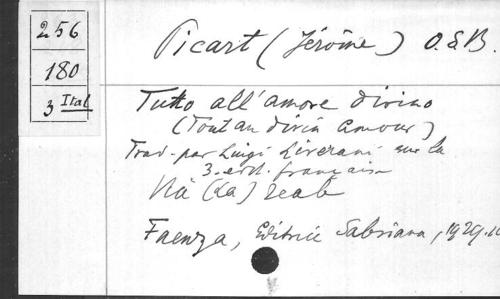 256
180
3 Ital
Picart (Jérôme) O.S.B.
Tutto all'amore divino
(Tout au divin amour)
Trad. par Luigi Liverani sur la
3. edit. française
Via (La) reale
Faenza, Editrice Salesiana, 1929.